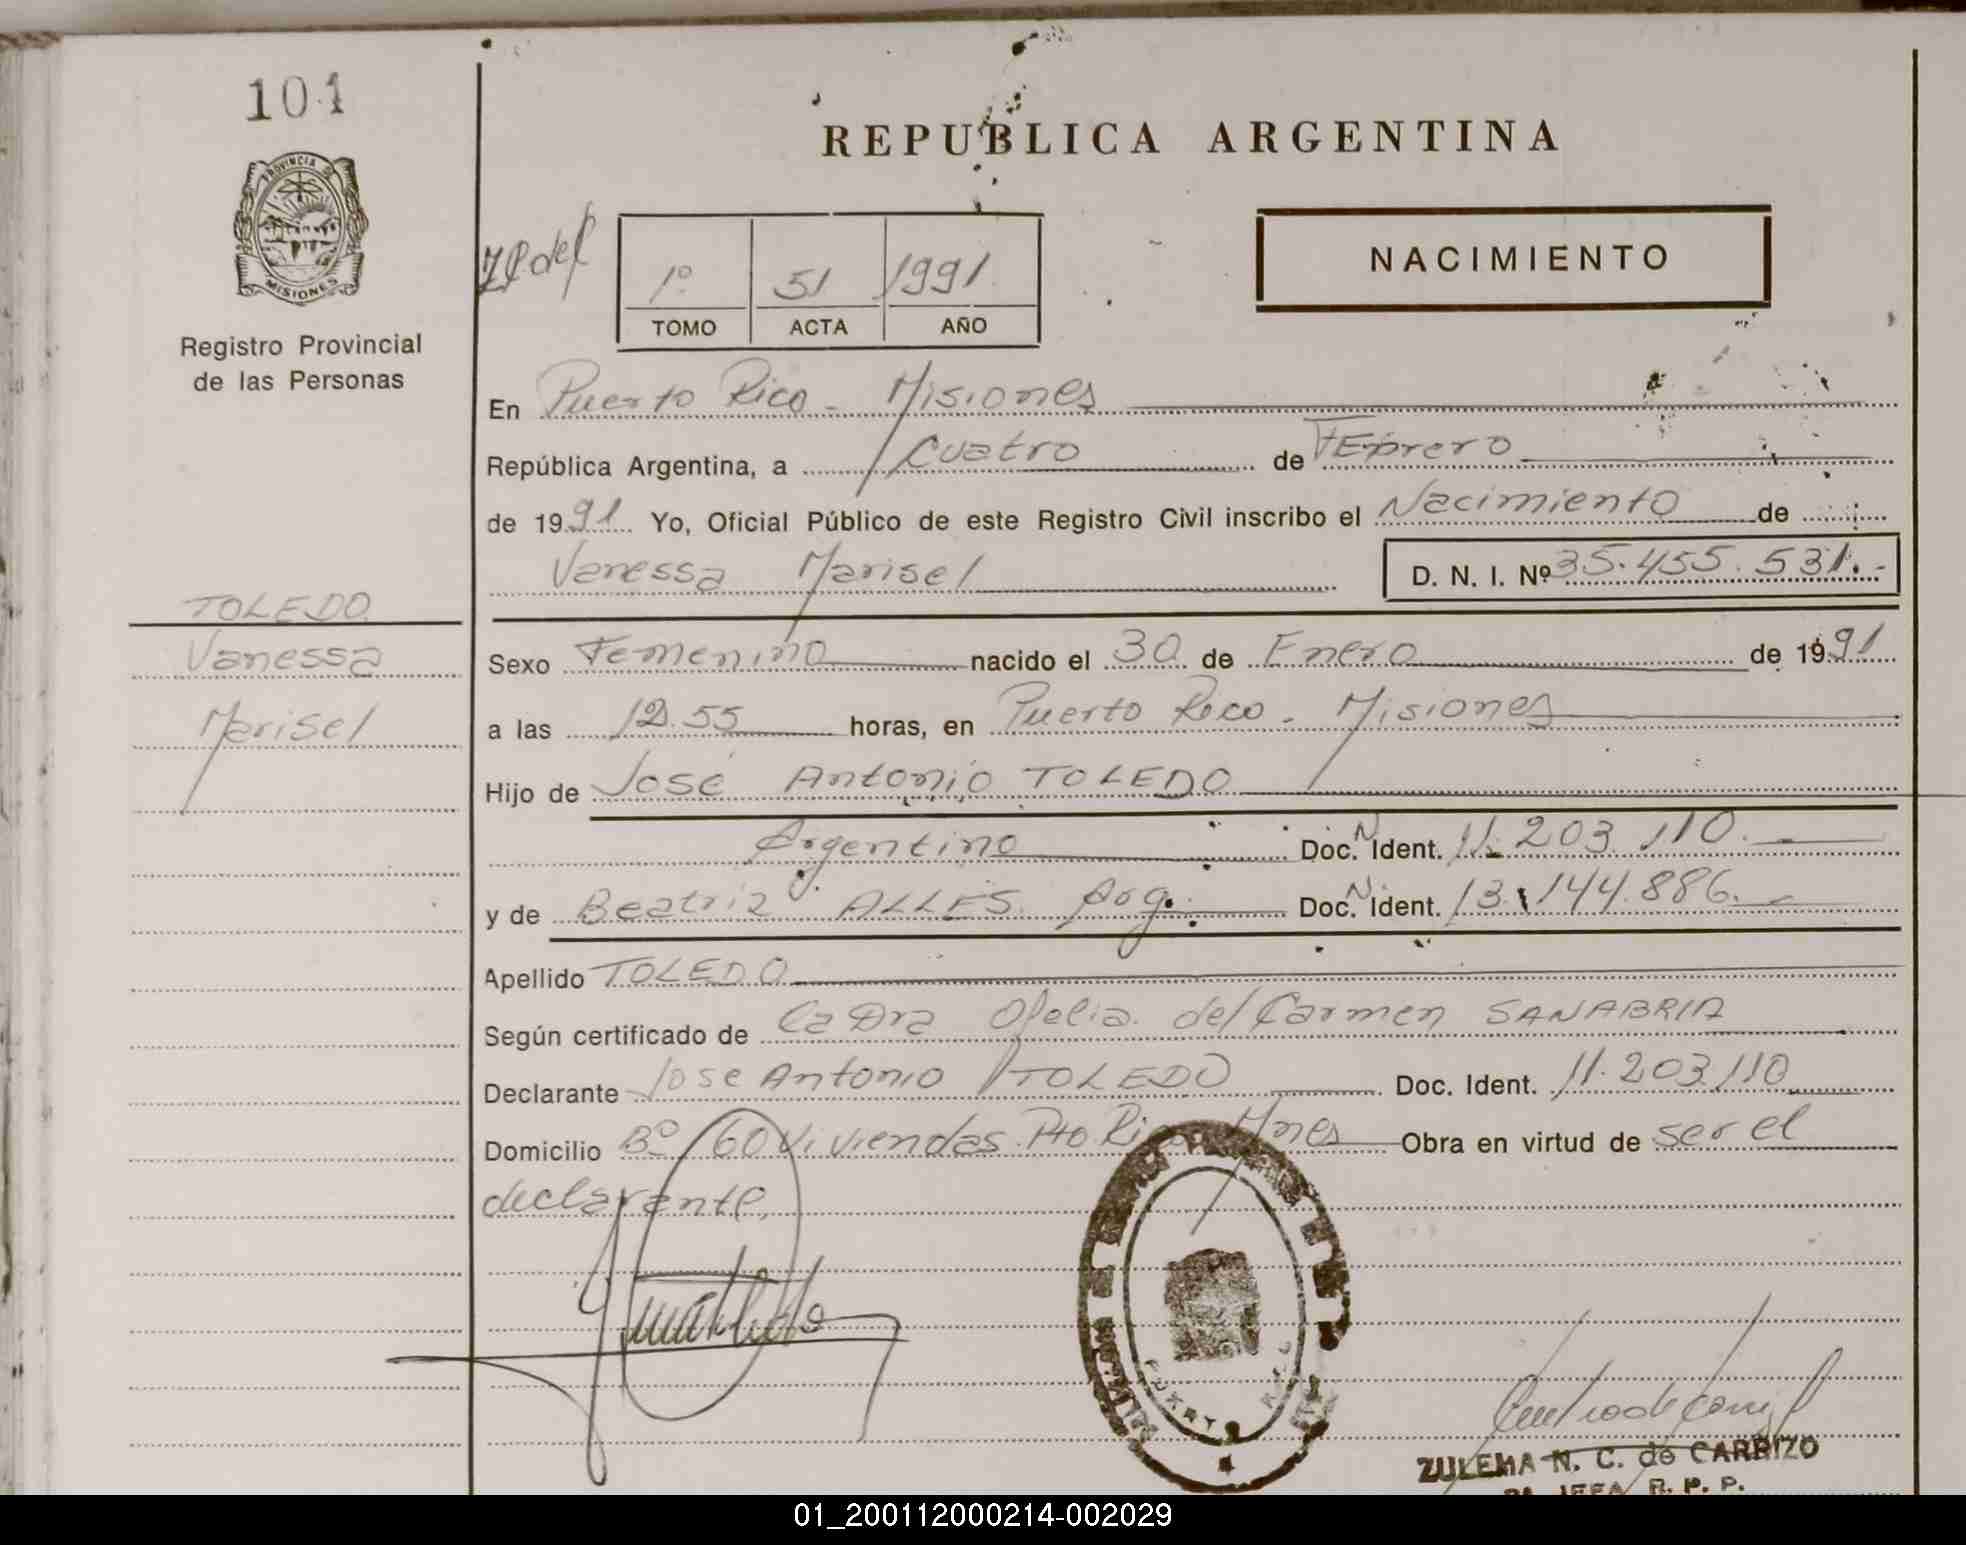 101
REPUBLICA ARGENTINA
PROVINCIA DE
MISIONES
Registro Provincial
de las Personas
1º 51 1991
TOMO ACTA AÑO
NACIMIENTO
En Puerto Rico - Misiones
República Argentina, a Cuatro de FEbrero
de 1991 Yo, Oficial Público de este Registro Civil inscribo el Nacimiento de
Vanessa Marisel D. N. I. Nº 35.455.531.-
TOLEDO
Vanessa
Marisel
Sexo Femenino nacido el 30 de Enero de 1991
a las 12.55 horas, en Puerto Rico - Misiones
Hijo de José Antonio TOLEDO
Argentino Doc. N Ident. 11.203.110.-
y de Beatriz ALLES. Arg. Doc. N Ident. 13.144.886.-
Apellido TOLEDO
Según certificado de La Dra Ofelia del Carmen SANABRIA
Declarante Jose Antonio TOLEDO Doc. Ident. 11.203.110
Domicilio Bº 60 Viviendas Pto Rico Mnes Obra en virtud de ser el
declarante.
ZULEMA N. C. de CARRIZO
JEFA R. P. P.
01_200112000214-002029